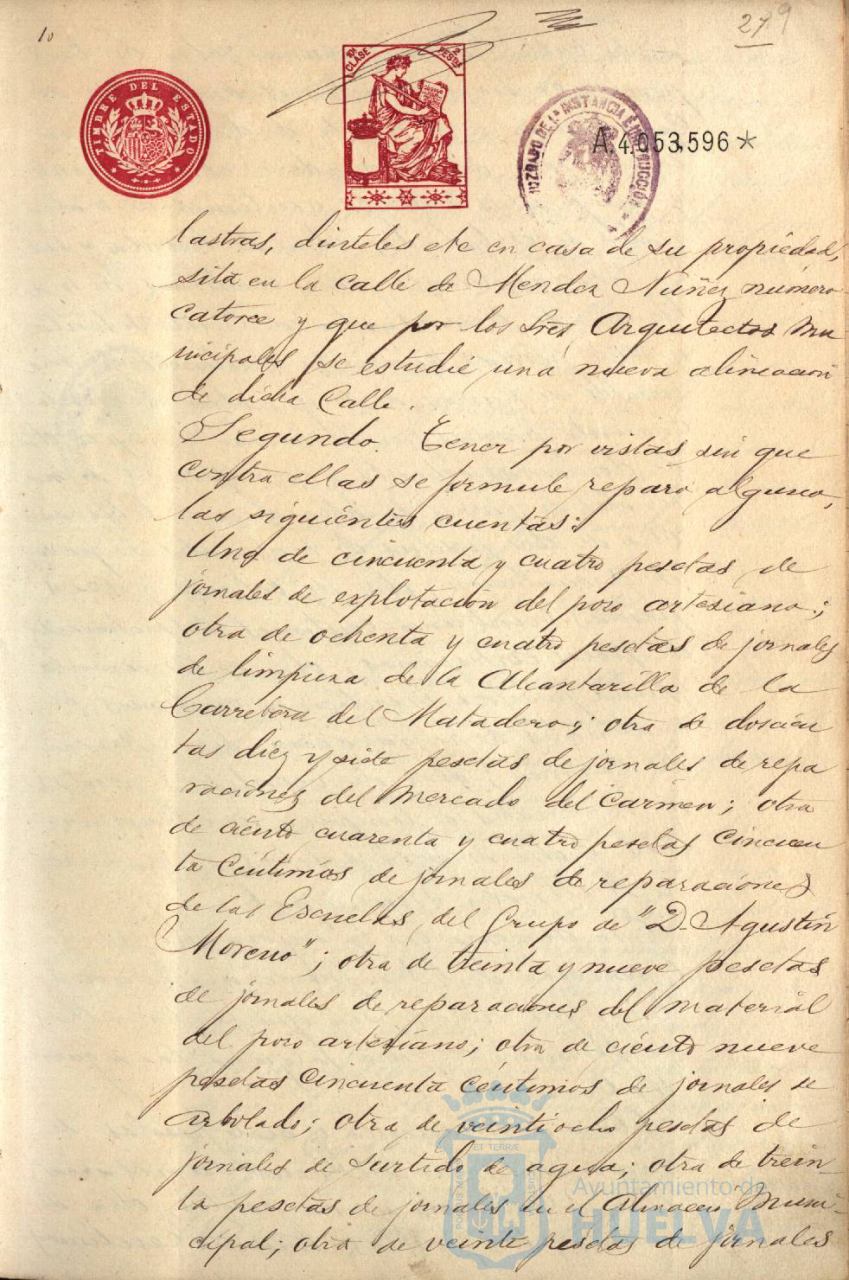 10
279
TIMBRE DEL ESTADO
10ª CLASE
2 PESETAS
JUZGADO DE 1ª INSTANCIA É INSTRUCCIÓN
A.4,053,596*
lastras, dinteles etc en casa de su propiedad,
sita en la calle de Mendez Núñez número
catorce y que por los Sres Arquitectos Mu
nicipales se estudie una nueva alineacion
de dicha Calle.
Segundo. Tener por vistas, sin que
contra ellas se formule reparo alguno,
las siguientes cuentas:
Una de cincuenta y cuatro pesetas de
jornales de explotacion del pozo artesiano;
otra de ochenta y cuatro pesetas de jornales
de limpieza de la Alcantarilla de la
Carretera del Matadero; otra de doscien
tas diez y siete pesetas de jornales de repa
raciones del Mercado del Carmen; otra
de ciento cuarenta y cuatro pesetas cincuen
ta céntimos de jornales de reparaciones
de las Escuelas del Grupo de "D. Agustín
Moreno"; otra de treinta y nueve pesetas
de jornales de reparaciones del material
del pozo artesiano; otra de ciento nueve
pesetas cincuenta céntimos de jornales de
arbolado; otra de veintiocho pesetas de
jornales de surtido de agua; otra de trein-
ta pesetas de jornales en el Almacen Muni
cipal; otra de veinte pesetas de jornales
Ayuntamiento de
HUELVA